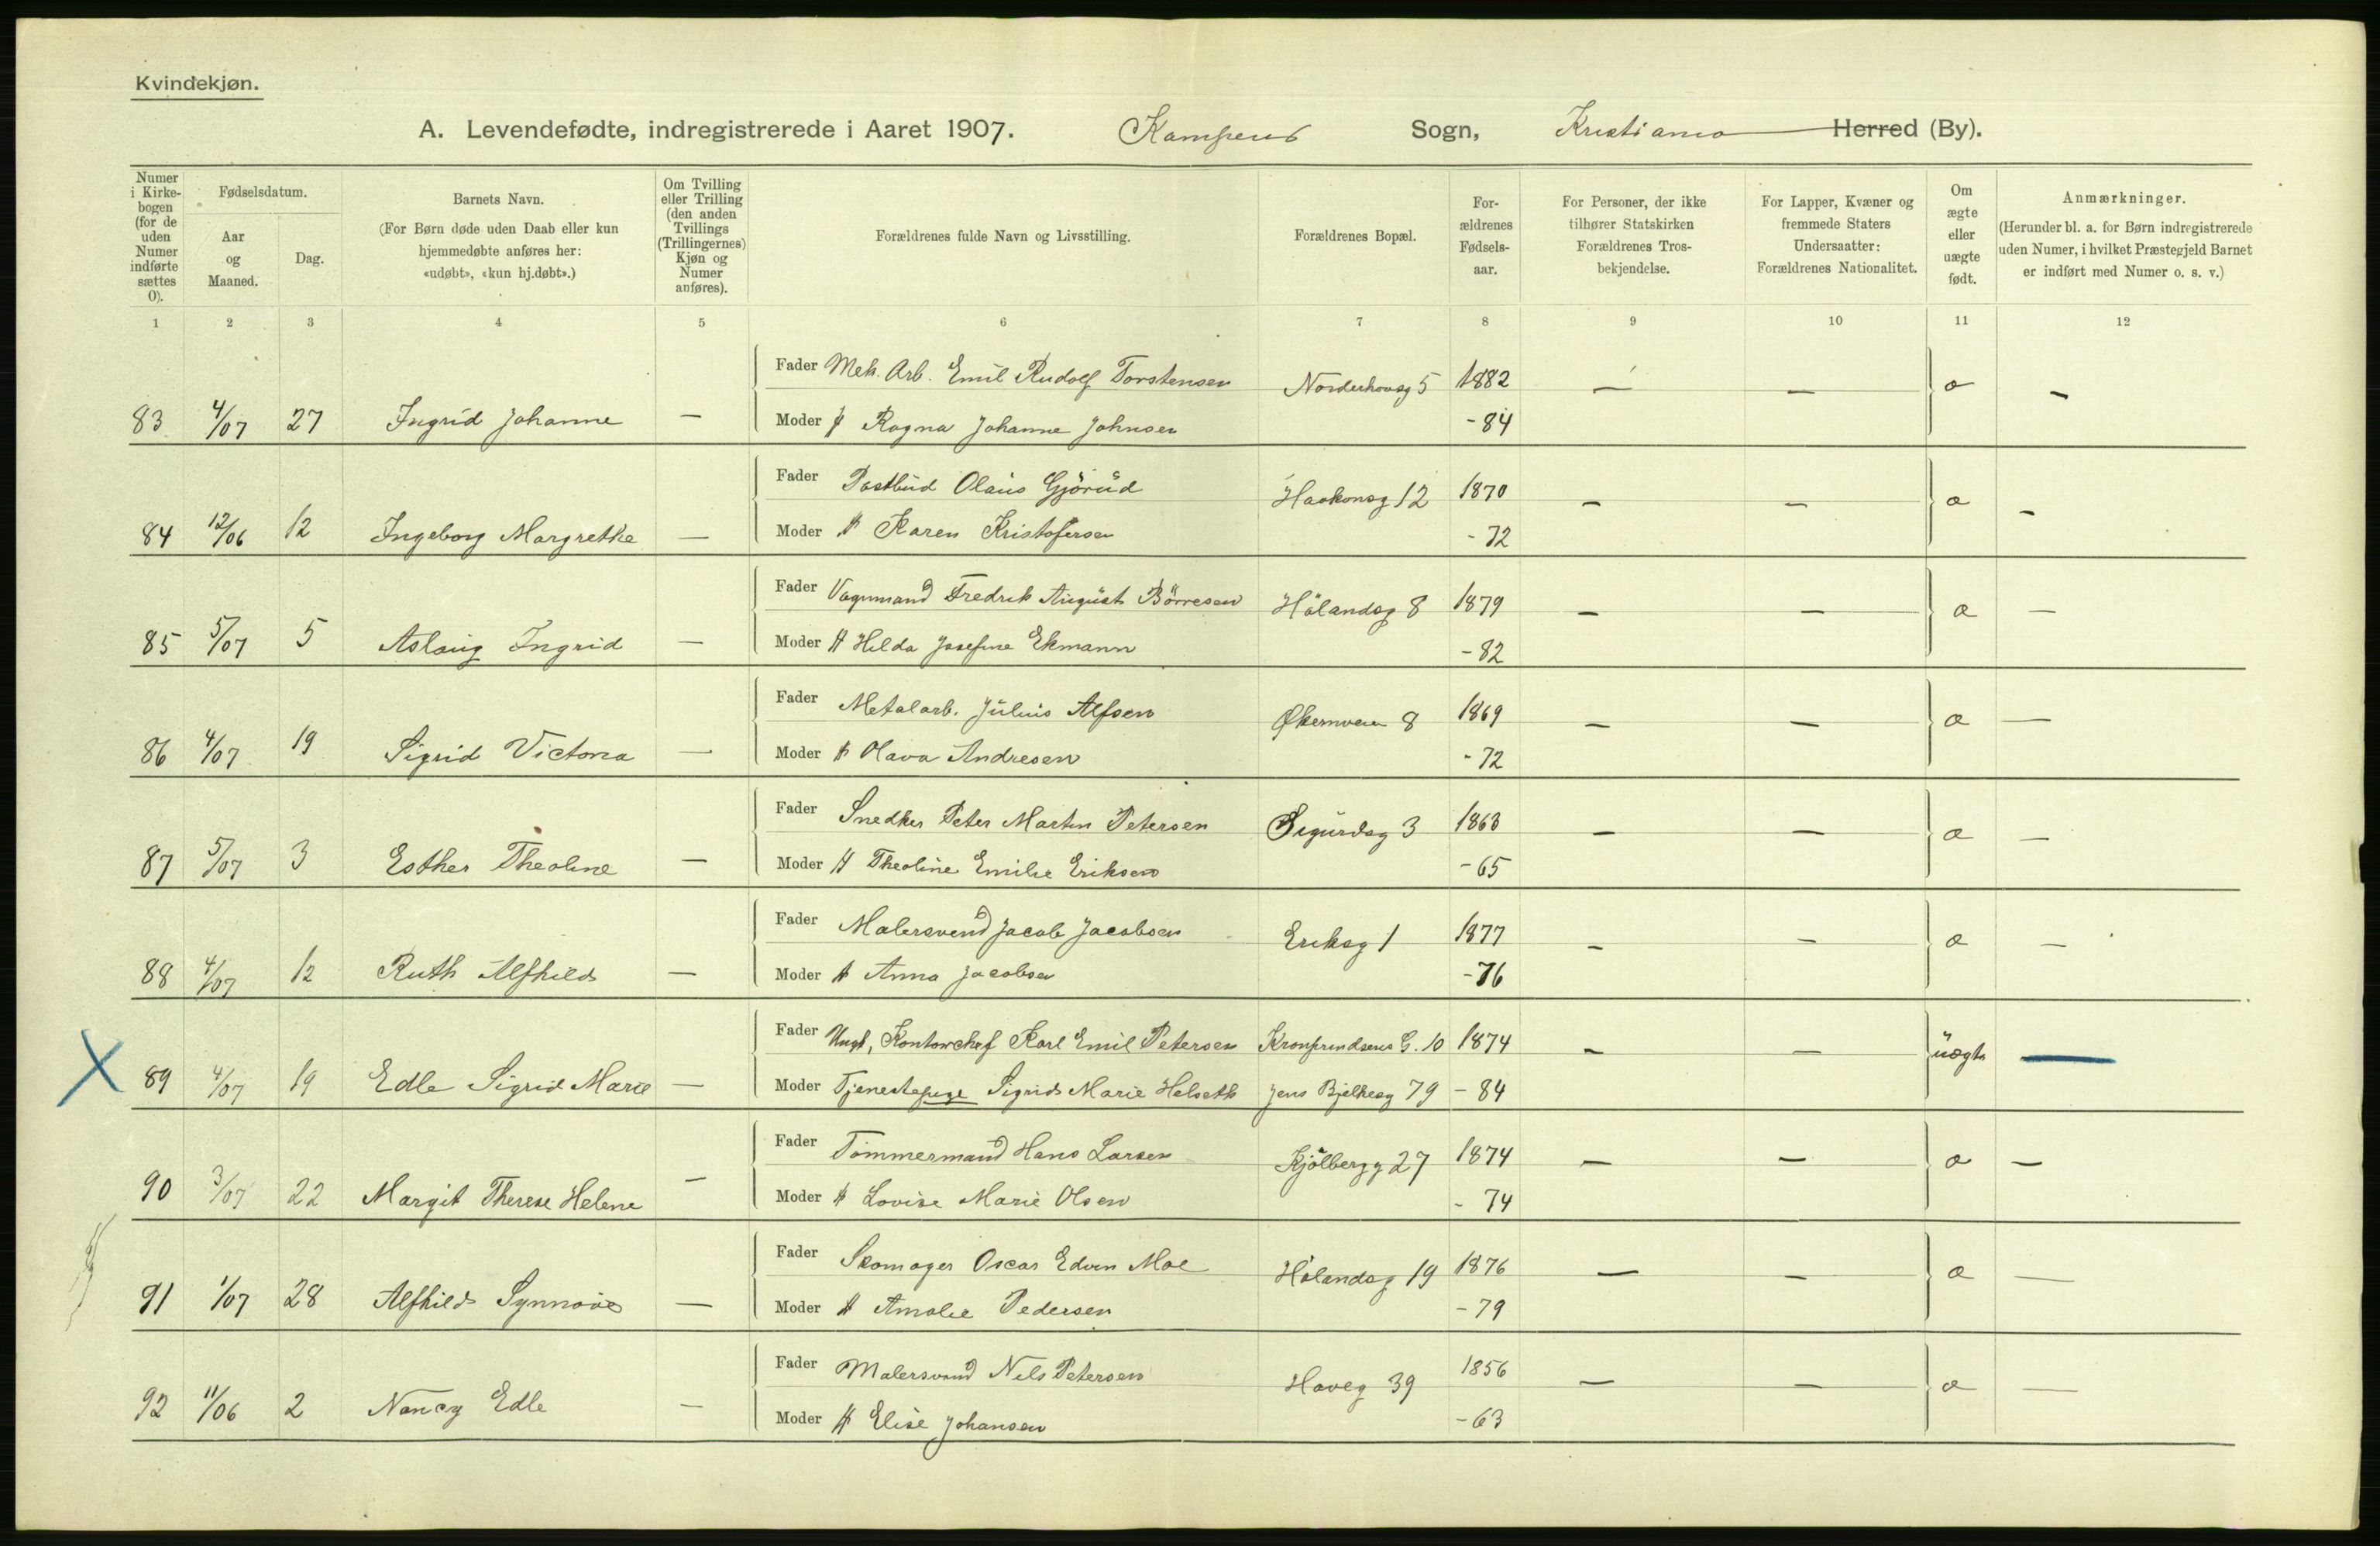 Kvindekjøn.
A. Levendefødte, indregistrerede i Aaret 1907. Kampens Sogn, Kristiania Herred (By).
Numer i Kirkebogen (for de uden Numer indførte sættes 0).
Fødselsdatum.
Aar og Maaned.
Dag.
Barnets Navn.
(For Børn døde uden Daab eller kun hjemmedøbte anføres her: «udøbt», «kun hj.døbt».)
Om Tvilling eller Trilling (den anden Tvillings (Trillingernes) Kjøn og Numer anføres).
Forældrenes fulde Navn og Livsstilling.
Forældrenes Bopæl.
Forældrenes Fødselsaar.
For Personer, der ikke tilhører Statskirken Forældrenes Trosbekjendelse.
For Lapper, Kvæner og fremmede Staters Undersaatter: Forældrenes Nationalitet.
Om ægte eller uægte født.
Anmærkninger.
(Herunder bl. a. for Børn indregistrerede uden Numer, i hvilket Præstegjeld Barnet er indført med Numer o. s. v.)
1 2 3 4 5 6 7 8 9 10 11 12
Fader Mek. Arb. Emil Rudolf Torstensen Norderhovsg 5 1882 — — æ —
83 4/07 27 Ingrid Johanne — Moder H Ragna Johanne Johnsen - 84
Fader Postbud Olaus Gjörud Haakonsg 12 1870 — — æ —
84 12/06 12 Ingeborg Margrethe — Moder H Karen Kristofersen - 72
Fader Vognmand Fredrik August Börresen Hölandsg 8 1879 — — æ —
85 5/07 5 Aslaug Ingrid — Moder H Hilda Josefine Ekmann - 82
Fader Metalarb. Julius Alfsen Økernveien 8 1869 — — æ —
86 4/07 19 Sigrid Victoria — Moder H Olava Andresen - 72
Fader Snedker Peter Martin Petersen Sigurdsg 3 1863 — — æ —
87 5/07 3 Esther Theoline — Moder H Theoline Emilie Eriksen - 65
Fader Malersvend Jacob Jacobsen Eriksg 1 1877 — — æ —
88 4/07 12 Ruth Alfhild — Moder H Anna Jacobsen - 76
Fader Ungk, Kontorchef Karl Emil Petersen Kronprindsens G. 10 1874 — — uægte —
X 89 4/07 19 Edle Sigrid Marie — Moder Tjenestepige Sigrid Marie Helseth Jens Bjelkesg 79 - 84
Fader Tömmermand Hans Larsen Kjölbergg 27 1874 — — æ —
90 3/07 22 Margit Therese Helene — Moder H Lovise Marie Olsen - 74
Fader Skomager Oscar Edvin Moe Hölandsg 19 1876 — — æ —
91 1/07 28 Alfhild Synnöve — Moder H Amalie Pedersen - 79
Fader Malersvend Nils Petersen Haveg 39 1856 — — æ —
92 11/06 2 Nancy Edle — Moder H Elise Johansen - 63